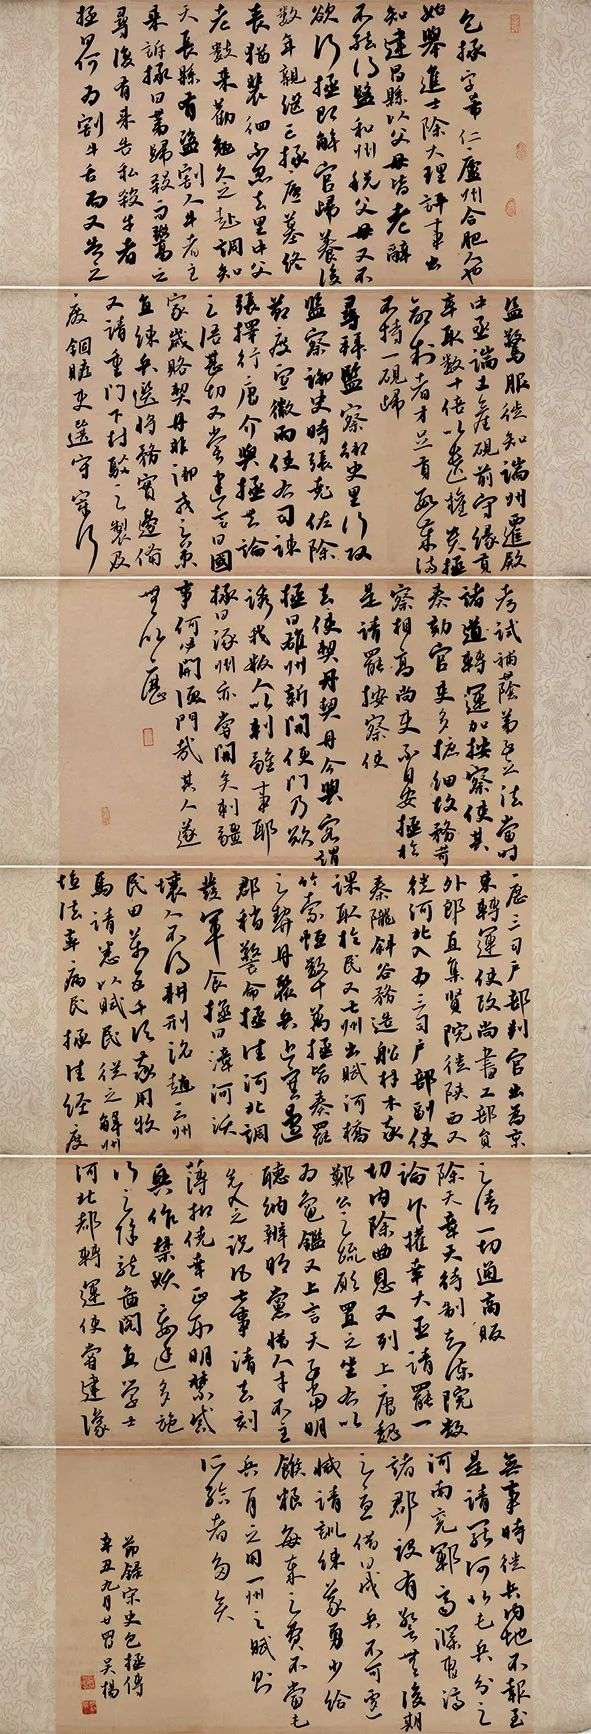 包拯字希仁廬州合肥人也
始舉進士除大理評事出
知建昌縣以父母皆老辭
不就得監和州稅父母又不
欲行拯即解官歸養後
數年親繼亡拯廬墓終
喪猶裴徊不忍去里中父
老數來勸勉久之赴調知
天長縣有盜割人牛舌者主
來訴拯曰第歸殺而鬻之
尋復有來告私殺牛者
拯曰何為割牛舌而又告之
盜驚服徙知端州遷殿
中丞端土產硯前守緣貢
率取數十倍以遺權貴拯
命制者才足貢數歲滿
不持一硯歸
尋拜監察御史里行改
監察御史時張堯佐除
節度宣徽兩使右司諫
張擇行唐介與拯共論
之語甚切又嘗建言曰國
家歲賂契丹非禦戎之策
宜練兵選將務實邊備
又請重門下封駁之製及
廢錮贓吏選守宰行
考試補蔭弟子之法當時
諸道轉運加按察使其
奏劾官吏多摭細故務苛
察相高尚吏不自安拯於
是請罷按察使
去使契丹契丹令典客謂
拯曰雄州新開便門乃欲
誘我叛人以刺疆事耶
拯曰涿州亦嘗開矣刺疆
事何必開便門哉其人遂
無以應
歷三司戶部判官出為京
東轉運使改尚書工部員
外郎直集賢院徙陝西又
徙河北入為三司戶部副使
秦隴斜谷務造船材木率
課取於民又七州出賦河橋
竹索恆數十萬拯皆奏罷
之契丹聚兵近塞邊
郡稍警命拯往河北調
發軍食拯曰漳河沃
壤人不得耕邢洺趙三州
民田萬五千頃率用牧
馬請悉以賦民從之解州
鹽法率病民拯往經度
之請一切通商販
除天章閣待制知諫院數
論斥權幸大臣請罷一
切內除曲恩又列上唐魏
鄭公三疏願置之坐右以
為龜鑑又上言天子當明
聽納辨朋黨惜人才不主
先入之說凡七事請去刻
薄抑僥幸正刑明禁戒
興作禁妖妄朝廷多施
行之除龍圖閣直學士
河北都轉運使嘗建議
無事時徙兵內地不報至
是請罷河北屯兵分之
河南兗鄆齊濮曹濟
諸郡設有警無後期
之憂借曰戍兵不可遽
減請訓練義勇少給
餱糧每歲之費不當屯
兵一月之用一州之賦則
所給者多矣
節錄宋史包拯傳
辛丑九月廿四吳楊